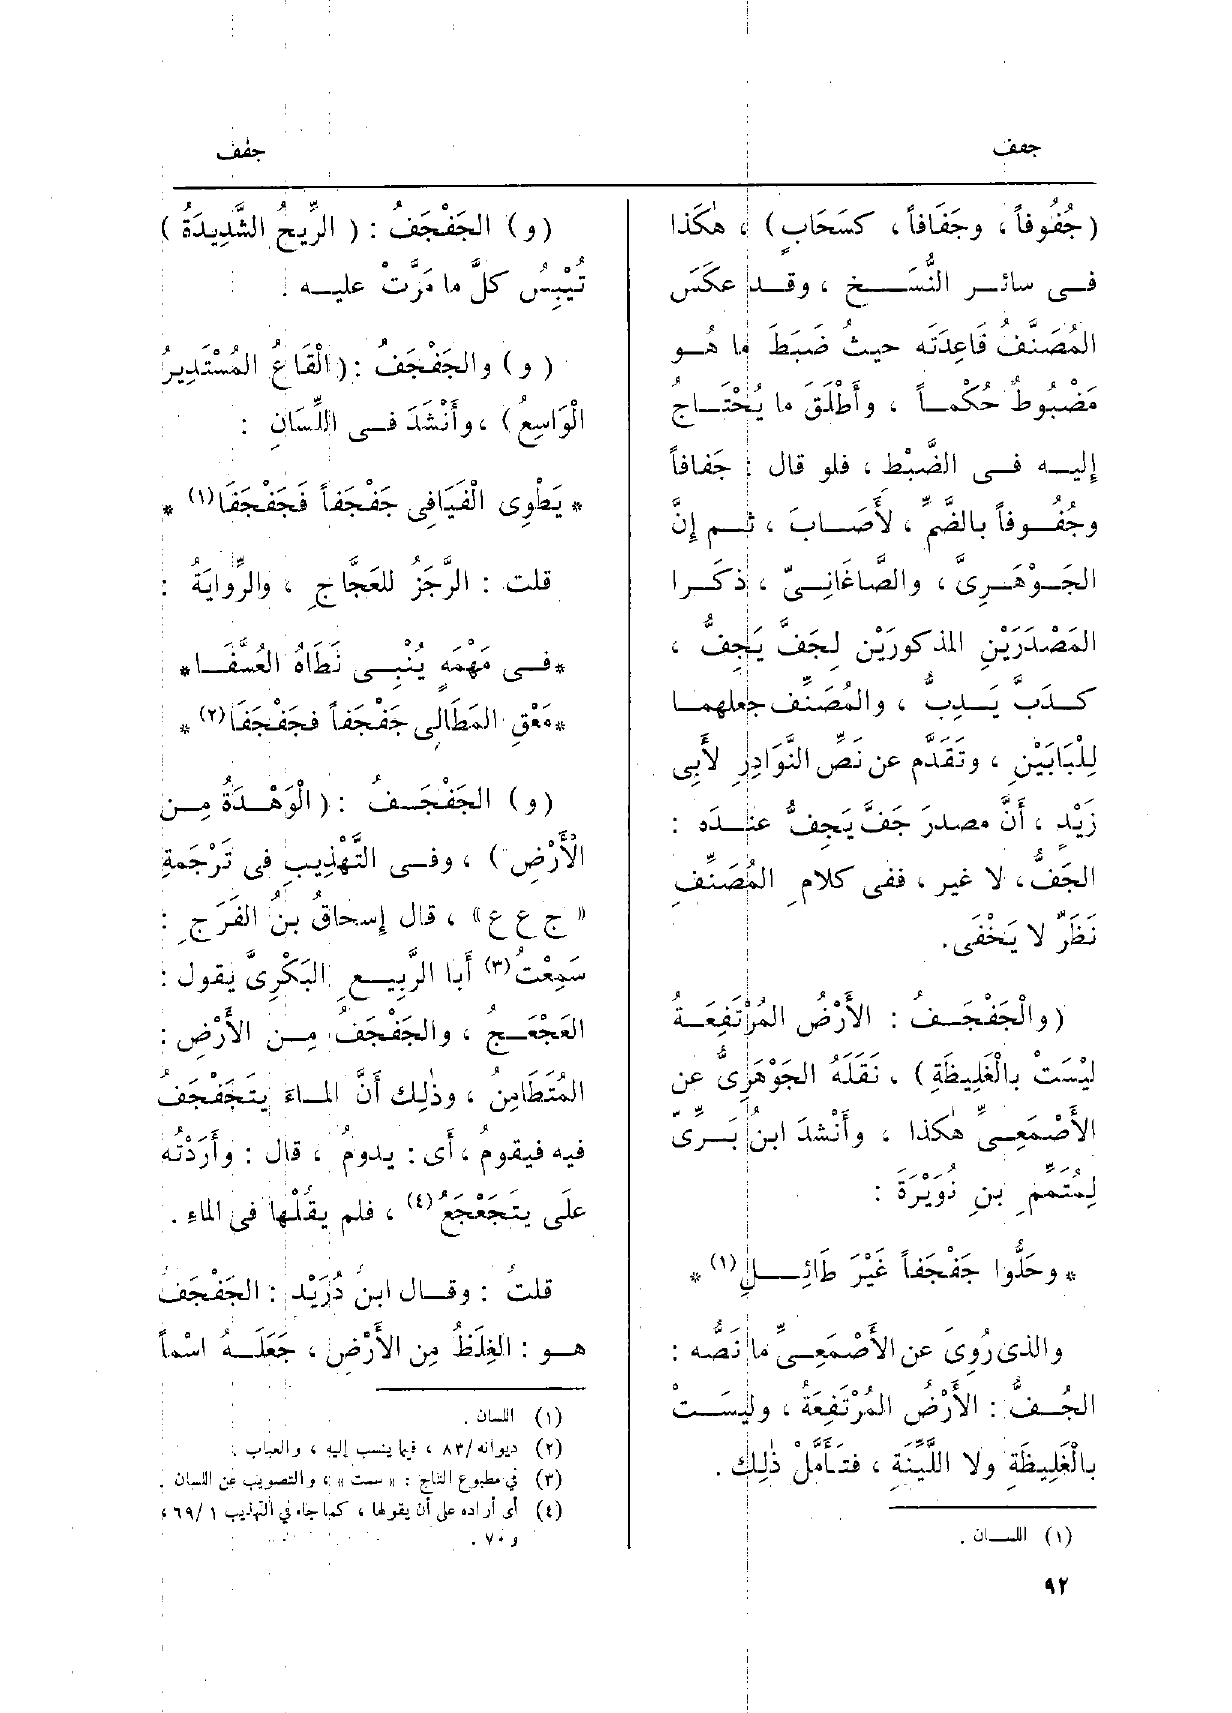 جفف
جفف
(جُفُوفاً ، وجَفَافاً ، كسَحَابٍ) ، هكَذا
فى سائر النُّسَخِ ، وقد عكَسَ
المُصَنِّفُ قَاعِدَتَه حيثُ ضَبَطَ ما هُو
مَضْبُوطٌ حُكْماً ، وأَطْلَقَ ما يُحْتَاجُ
إليه فى الضَّبْطِ ، فلو قال : جَفافاً
وجُفُوفاً بالضَّمِّ ، لأَصَابَ ، ثم إِنَّ
الجَوْهَرِىَّ ، والصَّاغَانِىَّ ، ذكَرا
المَصْدَرَيْنِ المذكورَيْن لِجَفَّ يَجِفُّ ،
كدَبَّ يَدِبُّ ، والمُصَنِّف جعلهما
لِلْبَابَيْنِ ، وتقَدَّم عن نَصِّ النَّوَادِرِ لأَبِى
زَيْدٍ ، أَنَّ مصدرَ جَفَّ يَجِفُّ عنده :
الجَفُّ، لا غير ، ففى كلامِ المُصَنِّفِ
نَظَرٌ لا يَخْفَى.
(والْجَفْجَفُ : الأَرْضُ المُرْتَفِعَةُ
ليْسَتْ بالْغَلِيظَةِ) ، نَقَلَهُ الجَوْهَرِىُّ عن
الأَصْمَعِىِّ هكَذا ، وأَنْشدَ ابنُ بَرِىّ
لِمُتَمِّمِ بنِ نُوَيْرَةَ :
* وحَلُّوا جَفْجَفاً غَيْرَ طَائِلِ(١) *
والذى رُوِىَ عن الأَصْمَعِىِّ ما نَصُّه :
الجُفُّ : الأَرْضُ المُرْتَفِعَةُ ، وليسَتْ
بالْغَلِيظَةِ ولا اللَّيِّنَةِ ، فتَأَمَّلْ ذلِك .
(١) اللسان .
(و) الجَفْجَفُ : ( الرِّيحُ الشَّدِيدَةُ )
تُيْبِسُ كلَّ ما مَرَّتْ عليه .
(و) والجَفْجَفُ :( الْقَاعُ المُسْتَدِيرُ
الْوَاسِعُ) ، وأَنْشَدَ فى اللِّسَانِ :
* يَطْوِى الْفَيَافِى جَفْجَفاً فَجَفْجَفَا(١) *
قلت : الرَّجَزُ للعَجَّاجِ ، والرِّوايَةُ :
*فى مَهْمَهٍ يُنْبِى نَطَاهُ العُسَّفَا*
*مَعْقِ المَطَالِى جَفْجَفاً فجَفْجَفَا(٢) *
(و) الجَفْجَفُ :( الْوَهْدَةُ مِن
الْأَرْضِ ) ، وفى التَّهْذِيبِ فى تَرْجَمةِ
« ج ع ع » ، قال إسحاقُ بنُ الفَرَجِ :
سَمِعْتُ(٣) أَبا الرَّبِيعِ البَكْرِىَّ يقول :
العَجْعَجُ ، والجَفْجَفُ مِن الأَرْضِ :
المُتَطَامِنُ ، وذلِك أَنَّ الماءَ يتَجَفْجَفُ
فيه فيقومُ ، أى : يدومُ ، قال : وأَرَدْتُه
علَى يتَجَعْجَعُ(٤) ، فلم يقُلْها فى الماءِ .
قلتُ : وقال ابنُ دُرَيْد : الجَفْجَفُ
هو : الغِلَظُ مِن الأَرْضِ ، جَعَلَهُ اسْماً
(١) اللسان .
(٢) ديوانه/٨٣ ، فيما ينسب إليه ، والعباب .
(٣) فى مطبوع التاج : « ست » ، والتصويب عن اللسان .
(٤) أى أراده على أن يقولها ، كما جاء فى التهذيب ١ /٦٩ ،
و ٧٠ .
٩٢